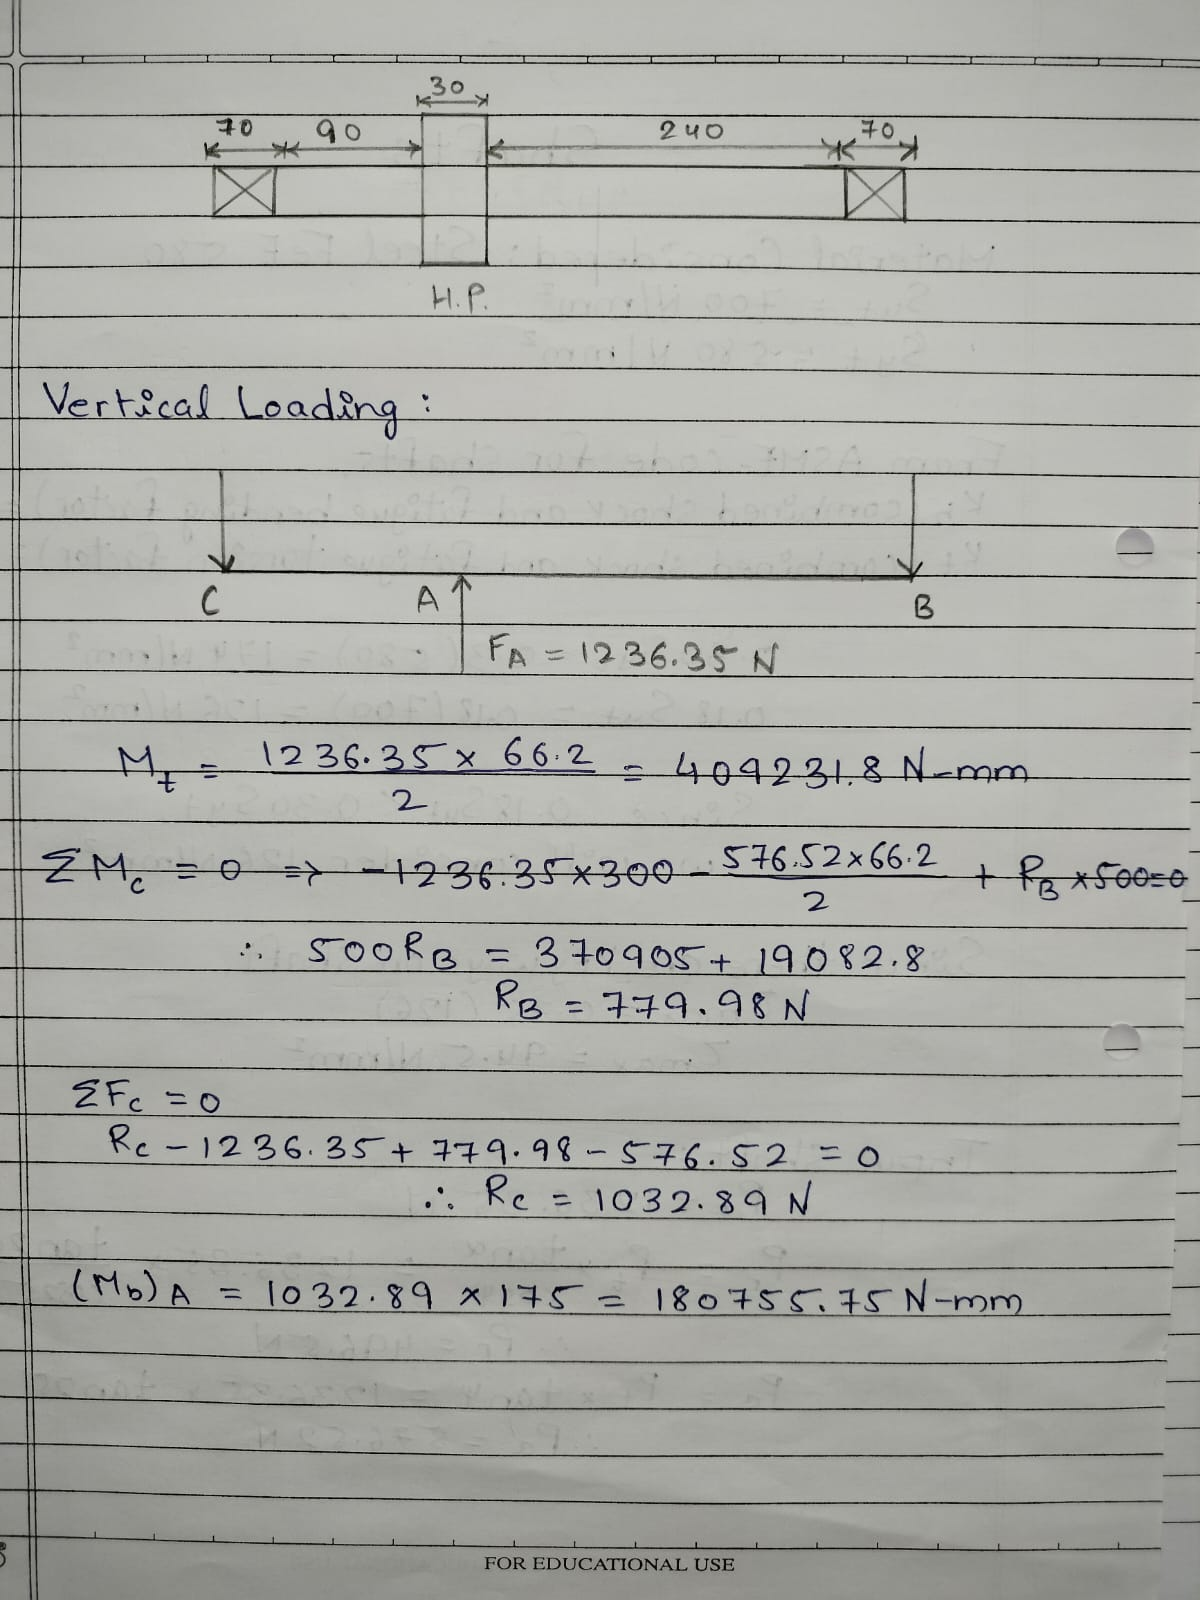 30
70 90 240 70
H.P.
Vertical Loading :
C A B
FA = 1236.35 N
Mt = 1236.35 x 66.2 / 2 = 409231.8 N-mm
ΣMc = 0 => -1236.35x300 - 576.52x66.2 / 2 + RB x500=0
∴ 500RB = 370905 + 19082.8
RB = 779.98 N
ΣFc = 0
Rc - 1236.35 + 779.98 - 576.52 = 0
∴ Rc = 1032.89 N
(Mb)A = 1032.89 x 175 = 180755.75 N-mm
FOR EDUCATIONAL USE